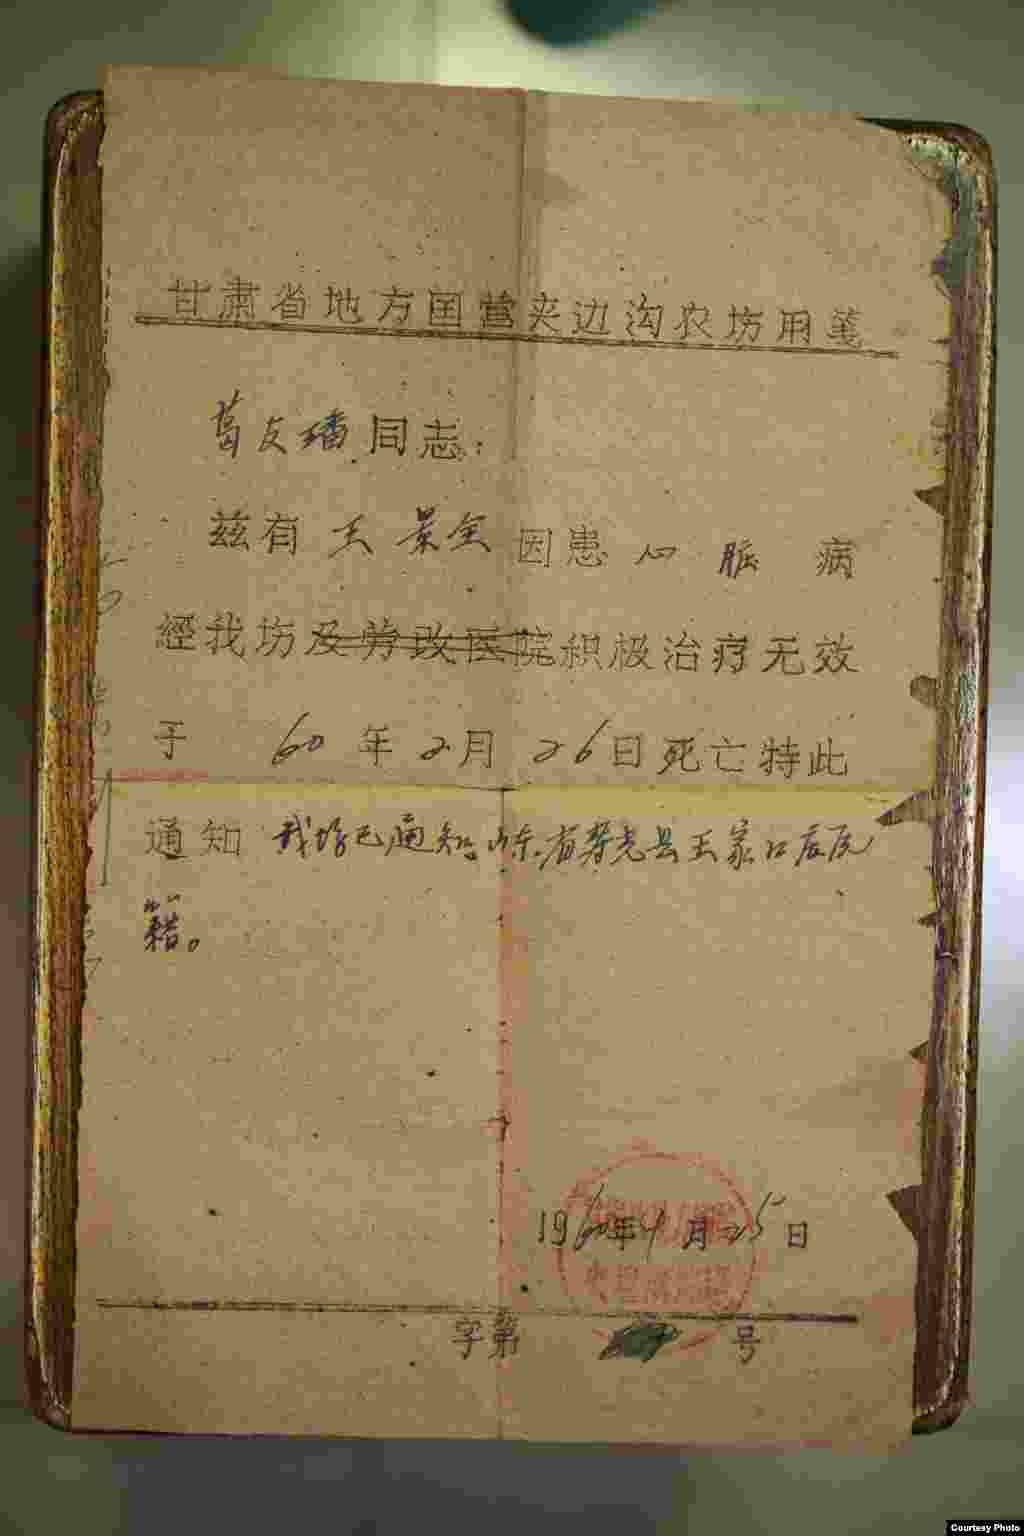 甘肃省地方国营夹边沟农场用笺
葛友璠同志:
兹有 王景全 因患 心脏 病
經我场及劳改医院积极治疗无效
于 60 年 2 月 26 日死亡特此
通知 我场已通知山东省寿光县王家口店原
籍。
1960年4月25日
字第 号
Courtesy Photo